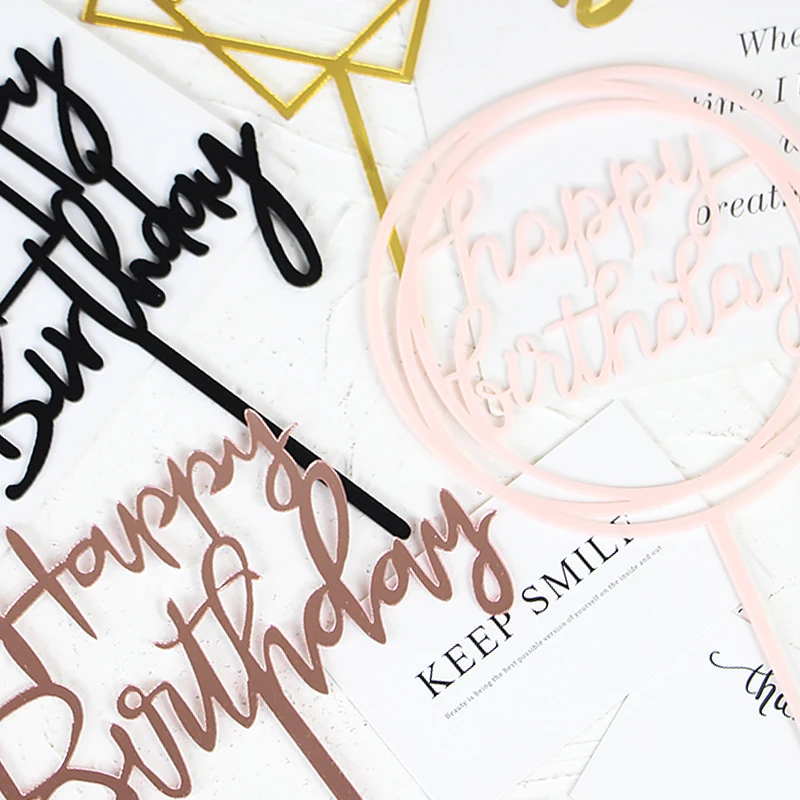 Birthday
happy
birthday
Happy
Birthday
KEEP SMILE
Beauty is being the best possible version of yourself on the inside and out